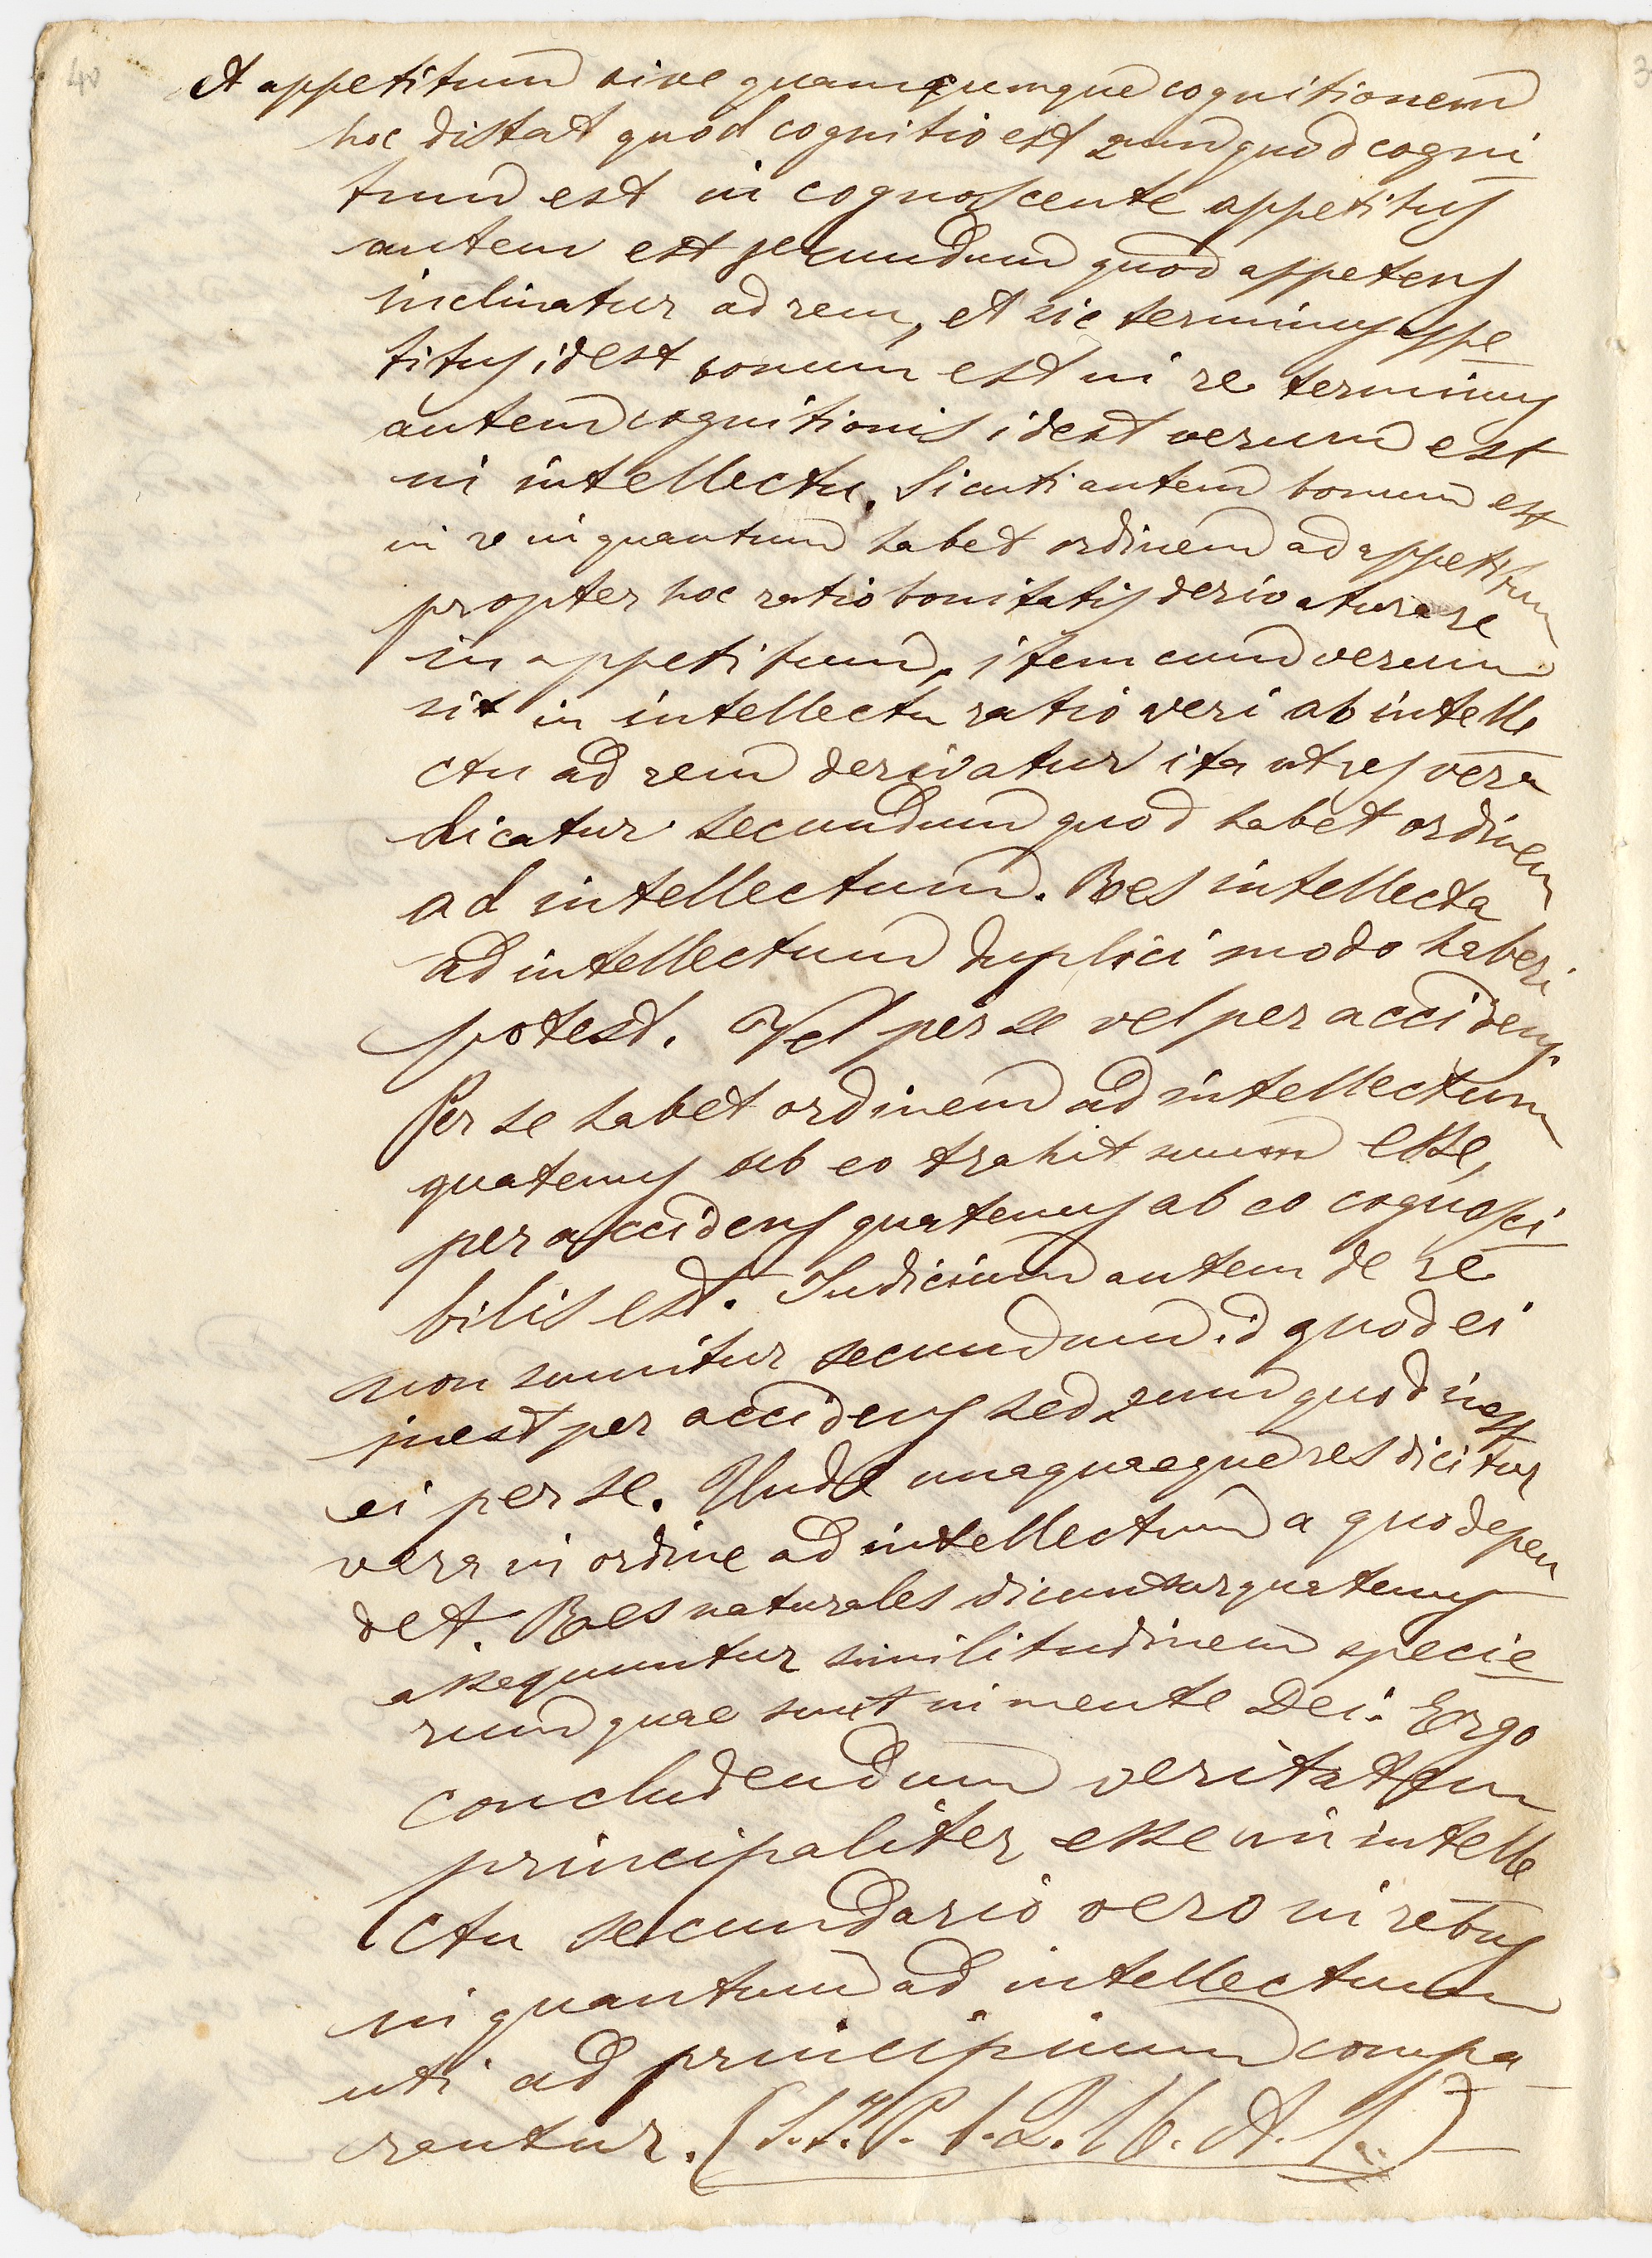 40
et appetitum sive quamcumque cognitionem
hoc distat quod cognitio est 2um quod cogni
tum est in cognoscente appetitus
autem est secundum quod appetens
inclinatur ad rem, et sic terminus appe
titus idest bonum est in re terminus
autem cognitionis idest verum est
in intellectu. Sicuti autem bonum est
in re in quantum habet ordinem ad appetitum
propter hoc ratio bonitatis derivatur a re
in appetitum, item cum verum
sit in intellectu ratio veri ab intelle
ctu ad rem derivatur ita ut res vera
dicatur secundum quod habet ordinem
ad intellectum. Res intellecta
ad intellectum duplici modo haberi
potest. Vel per se vel per accidens.
Per se habet ordinem ad intellectum
quatenus ab eo trahit suum esse,
per accidens quatenus ab eo cognosci
bilis est. Iudicium autem de re
non sumitur secundum id quod ei
inest per accidens sed 2um quod inest
ei per se. Unde unaquaeque res dicitur
vera in ordine ad intellectum a quo depen
det. Res naturales dicuntur quatenus
assequuntur similitudinem specie
rum quae sunt in mente Dei. Ergo
concludendum veritatem
principaliter esse in intelle
ctu secundario vero in rebus
in quantum ad intellectum
uti ad principium compa
rantur. (S. T. P. 1. Q. 16. A. 1.)